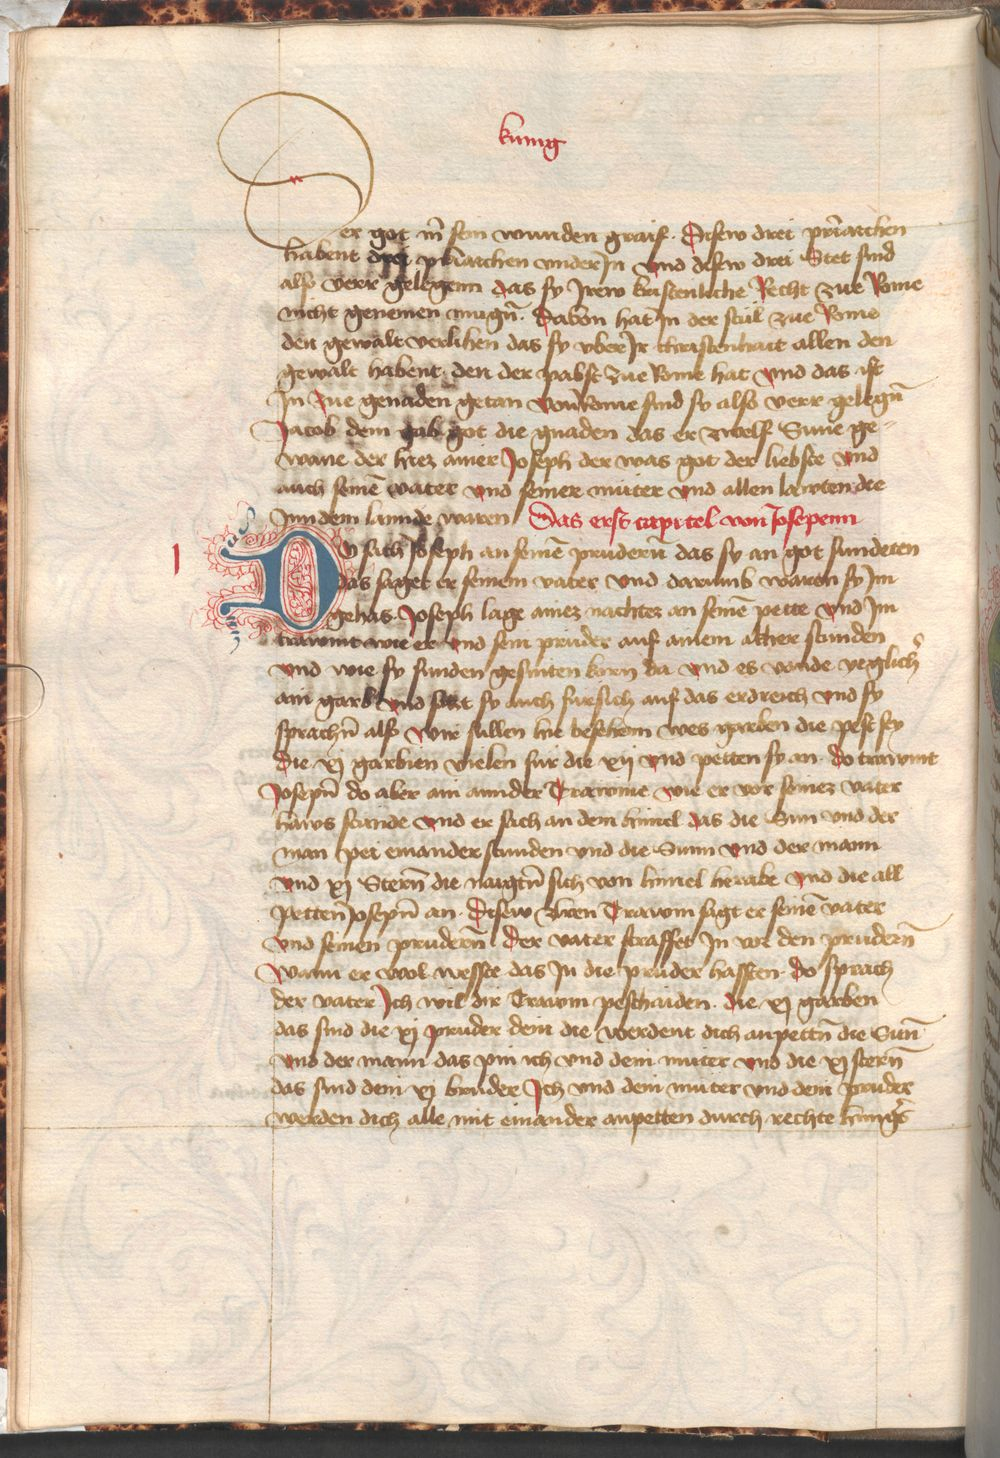 kunig
er got in sein wunden graif. Disew drei priarchen
habent drei priarchen under In vnd disew drei Stet sind
also verr gelegenn das sy Irew kristenliche Recht zue Rome
nicht genemen mugn̄. Dauon hat In der stůl zue Rome
den gewalt verlihen das sy vber Ir christenhait allen den
gewalt habent. den der pabst zue Rome hat vnd das ist
In zue genaden getan von Rome sind sy also verr gelegn̄
Jacob dem gab got die gnaden das er zwelf Süne ge-
wane der hiez ainer Joseph der was got der liebste vnd
auch seinē vater vnd seiner müter vnd allen lewten die
Inn dem lannde waren Das erst capitel von Josepenn
I
Do sach Joseph an seinē prudern̄ das sy an got sundeten
das saget er seinem vater vnd darumb waren sy Im
gehas. Joseph lage ainez nachtez an seinē pette vnd Im
trawmt wie er vnd sein pruder auf ainem akher stunden
vnd wie sy funden gesniten korn da vnd es vande yeglich
ain garb vnd satzt sy auch fursich auf das erdreich vnd sy
sprachn̄ also wir sullen hie besehenn wes garben die pest sey
die xj garbien vielen fur die xij vnd petten sy an. do trawmt
Josepn̄ do aber ain annder Trawme wie er vor seinez vater
haws stainde vnd er sach an dem himel das die Sun vnd der
man pei einander stunden vnd die Sunn vnd der mann
vnd xj Stern̄ die naigtn̄ sich von himel herabe vnd die all
petten Josepn̄ an. Disew zwen Trawm sagt er seinē vater
vnd seinen prudern̄. Der vater straffet In vor den prudern̄
Wann er wol wesste das In die pruder hassten. do sprach
der vater Ich wil dir Trawm peschaiden. die xj garben
das sind die xj pruder dein die werdent dich anpettn̄ die Sun̄
vnd der mann das pin ich vnd dein müter vnd die xj stern̄
das sind dein xj bruder Ich vnd dein müter vnd dein pruder
werden dich alle mit einander anpetten durch rechte